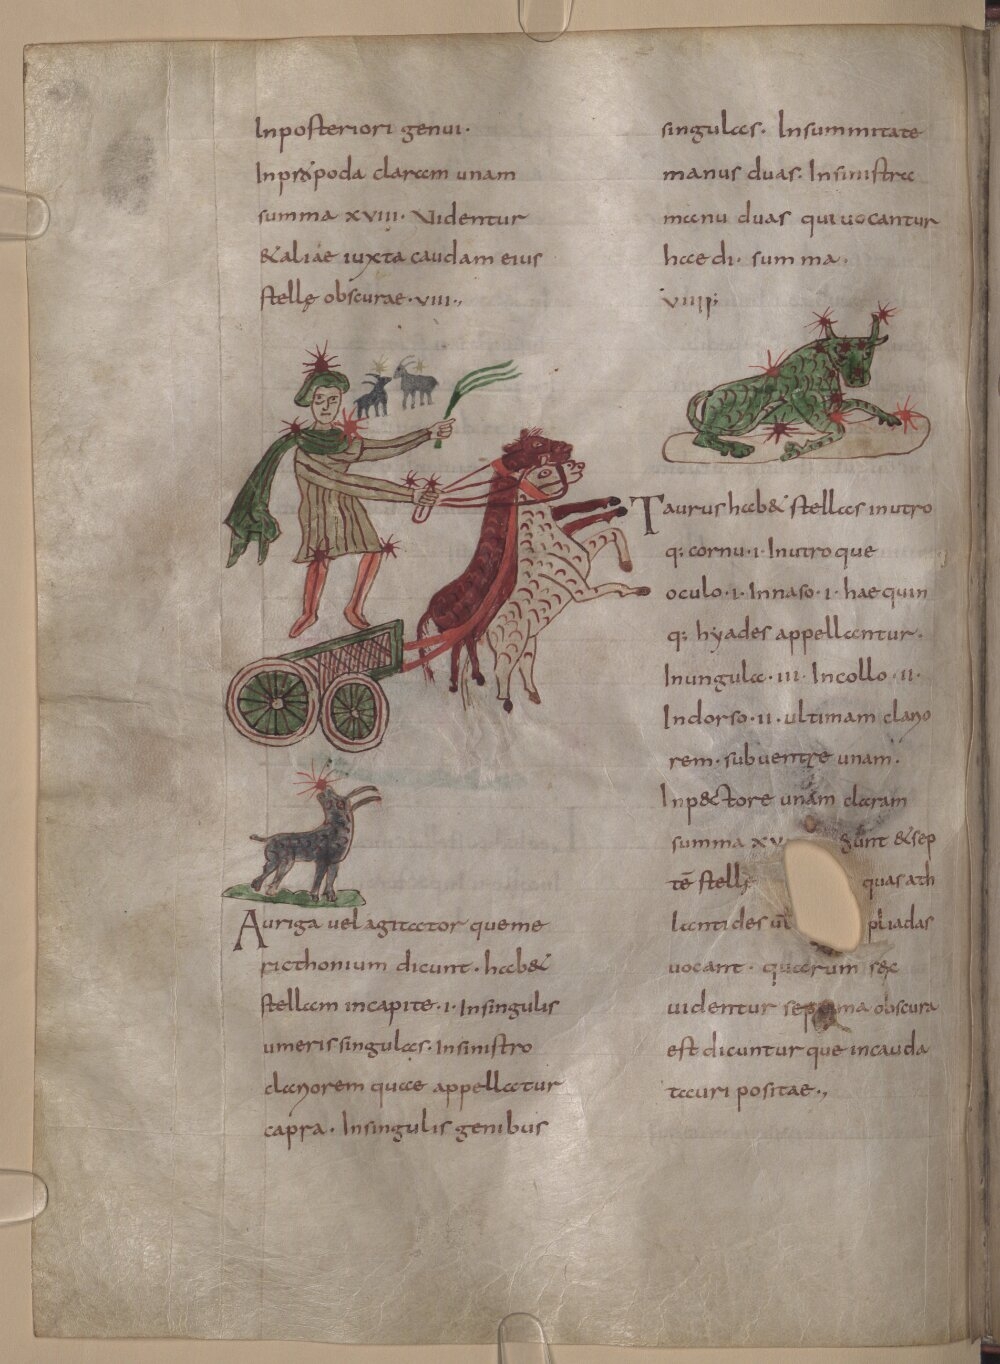 Inposteriori genui·
Inpr&poda claram unam
summa xviii· Videntur
&aliae iuxta caudam eius
stellę obscurae·viii·,
Auriga vel agitator queme
ricthonium dicunt· hab&
stellam incapite·i·Insingulis
umeris singulas·Insinistro
clariorem quae appellatur
capra· Insingulis genibus
singulas· Insummitate
manus duas· Insinistra
manu duas qui uocantur
haedi· summa·
viiii;
Taurus hab& stellas inutro
q; cornu·i·Inutroque
oculo·i·Innaso·i·hae quin
q; hyades appellantur·
Inungula·iii·Incollo·ii·
Indorso·ii·ultimam clario
rem·subuentre unam·
Inp&tore unam claram
summa xv gunt &sep
tē stellę quas ath
lantides ūl pliadas
uocant· quarum sex
uidentur septima obscura
est dicuntur que incauda
tauri positae·,